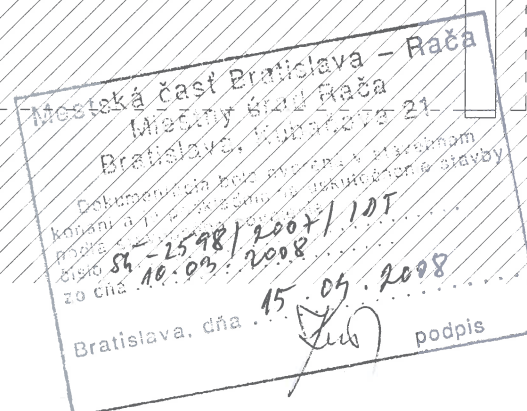 Mestská časť Bratislava – Rača
Miestny úrad Rača
Bratislava, Kubačova 21
Dokumentácia bola overená v stavebnom
konaní a je podkladom na uskutočnenie stavby
podľa
číslo SÚ-2598/2007/IDT
zo dňa 10.03.2008
Bratislava, dňa 15.04.2008
podpis